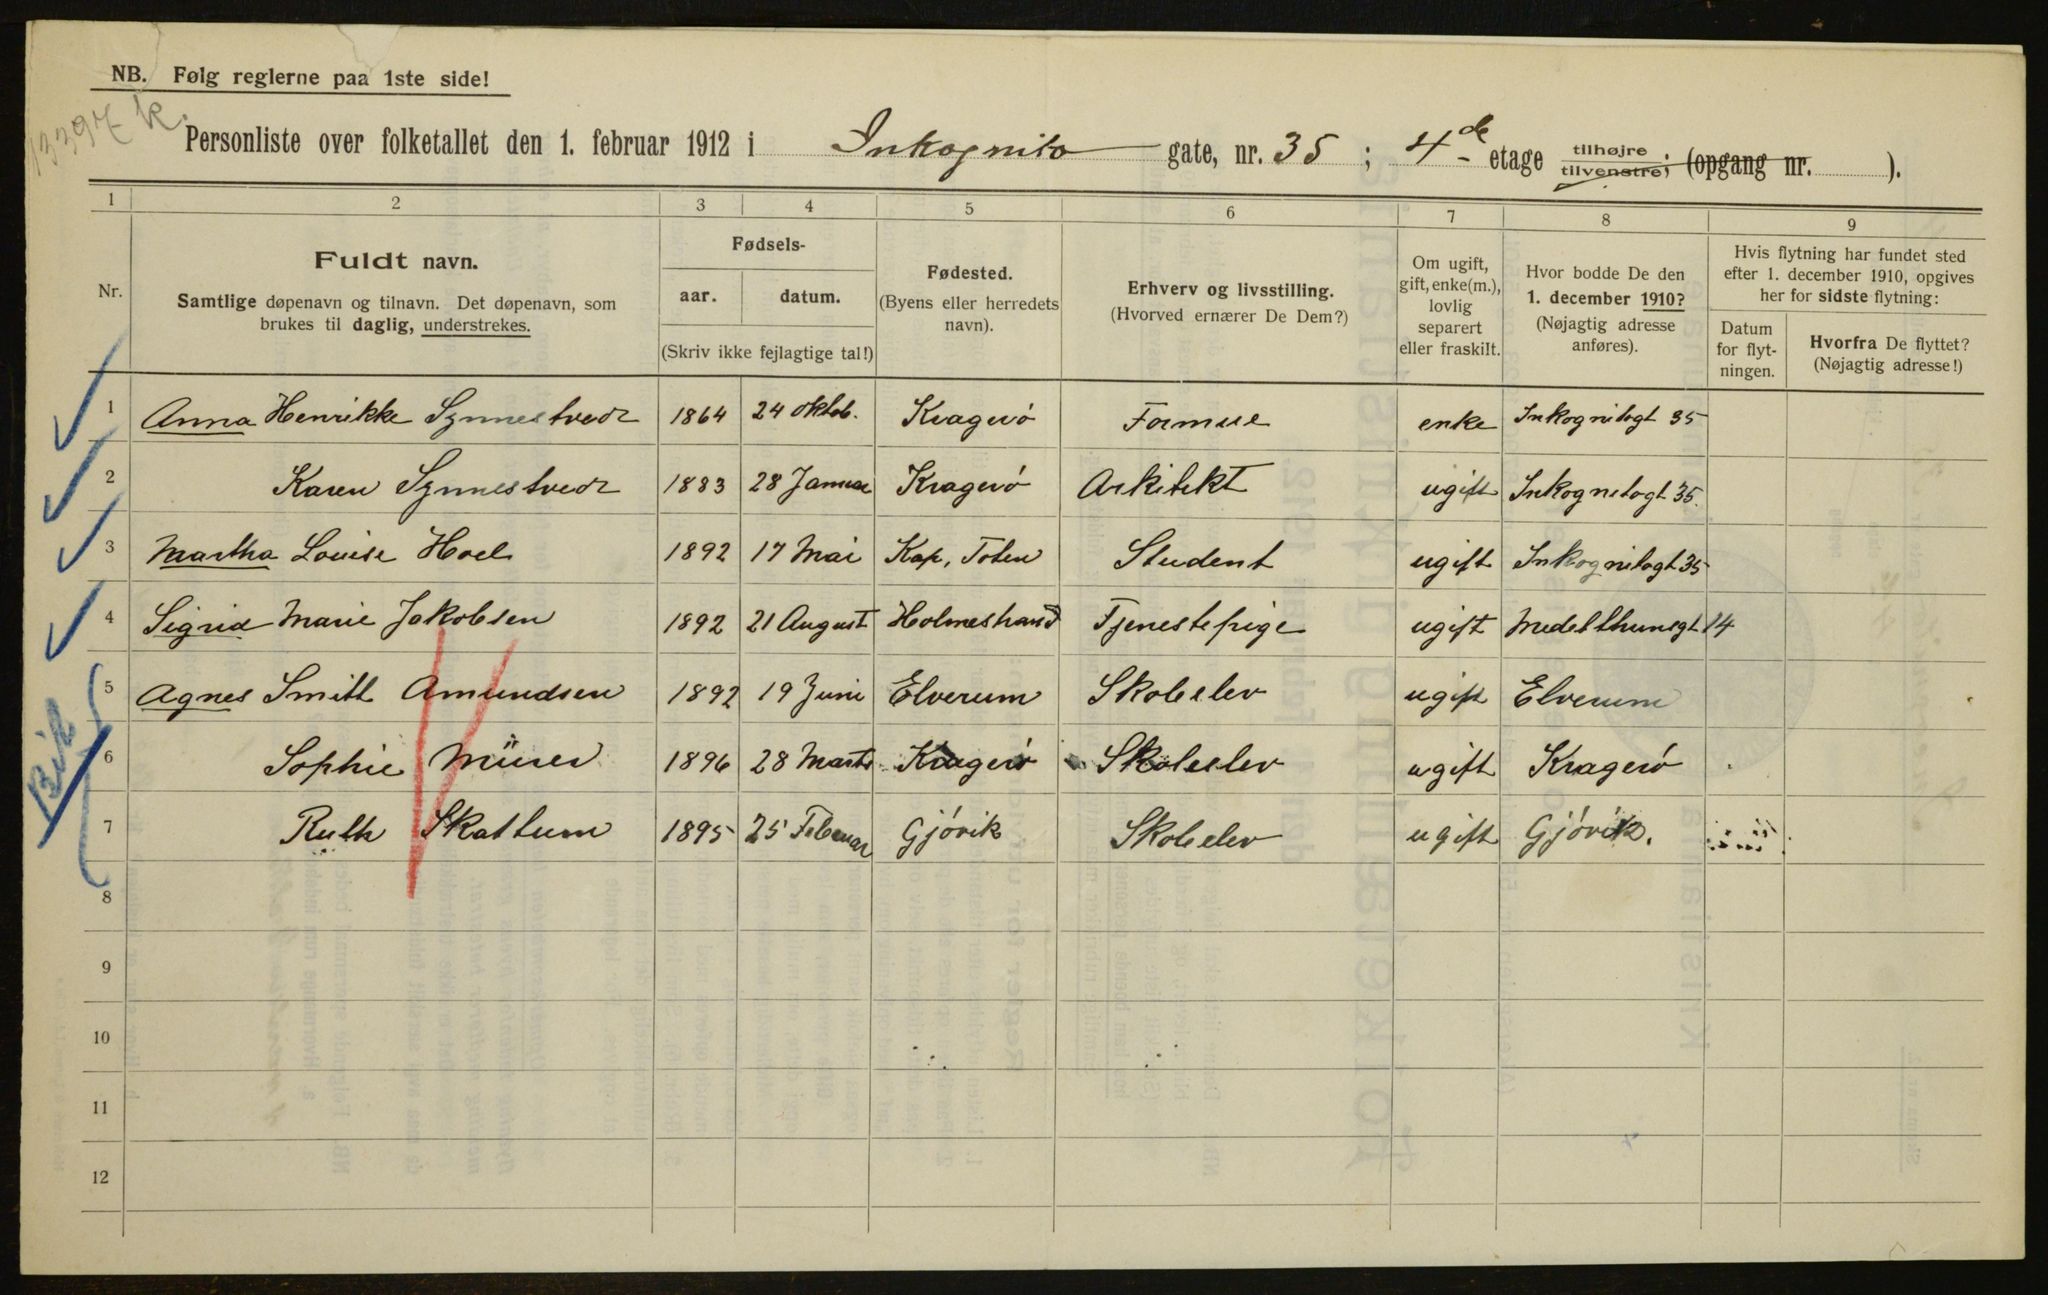 NB. Følg reglerne paa 1ste side!
13397 k.
Personliste over folketallet den 1. februar 1912 i Inkognito gate, nr. 35; 4de etage tilhøjre tilvenstre; (opgang nr. ).
1 2 3 4 5 6 7 8 9
Nr.
Fuldt navn.
Samtlige døpenavn og tilnavn. Det døpenavn, som
brukes til daglig, understrekes.
Fødsels-
aar. datum.
(Skriv ikke fejlagtige tal!)
Fødested.
(Byens eller herredets
navn).
Erhverv og livsstilling.
(Hvorved ernærer De Dem?)
Om ugift,
gift, enke(m.),
lovlig
separert
eller fraskilt.
Hvor bodde De den
1. december 1910?
(Nøjagtig adresse
anføres).
Hvis flytning har fundet sted
efter 1. december 1910, opgives
her for sidste flytning:
Datum
for flyt-
ningen.
Hvorfra De flyttet?
(Nøjagtig adresse!)
1 Anna Henrikke Synnestvedt 1864 24 Oktob. Kragerö Formue enke Inkognitogt 35
2 Karen Synnestvedt 1883 28 Januar Kragerö Arkitekt ugift Inkognitogt 35.
3 Martha Louise Hoel 1892 17 Mai Kap, Toten Student ugift Inkognitogt 35
4 Sigrid Marie Jakobsen 1892 21 August Holmestrand Tjenestepige ugift Medelthunsgt 14
5 Agnes Smitt Amundsen 1892 19 Juni Elverum Skoleelev ugift Elverum
6 Sophie Müürer 1896 28 Marts Kragerö Skoleelev ugift Kragerö
7 Ruth Skattum 1895 25 Februar Gjövik Skoleelev ugift Gjövik.
8
9
10
11
12